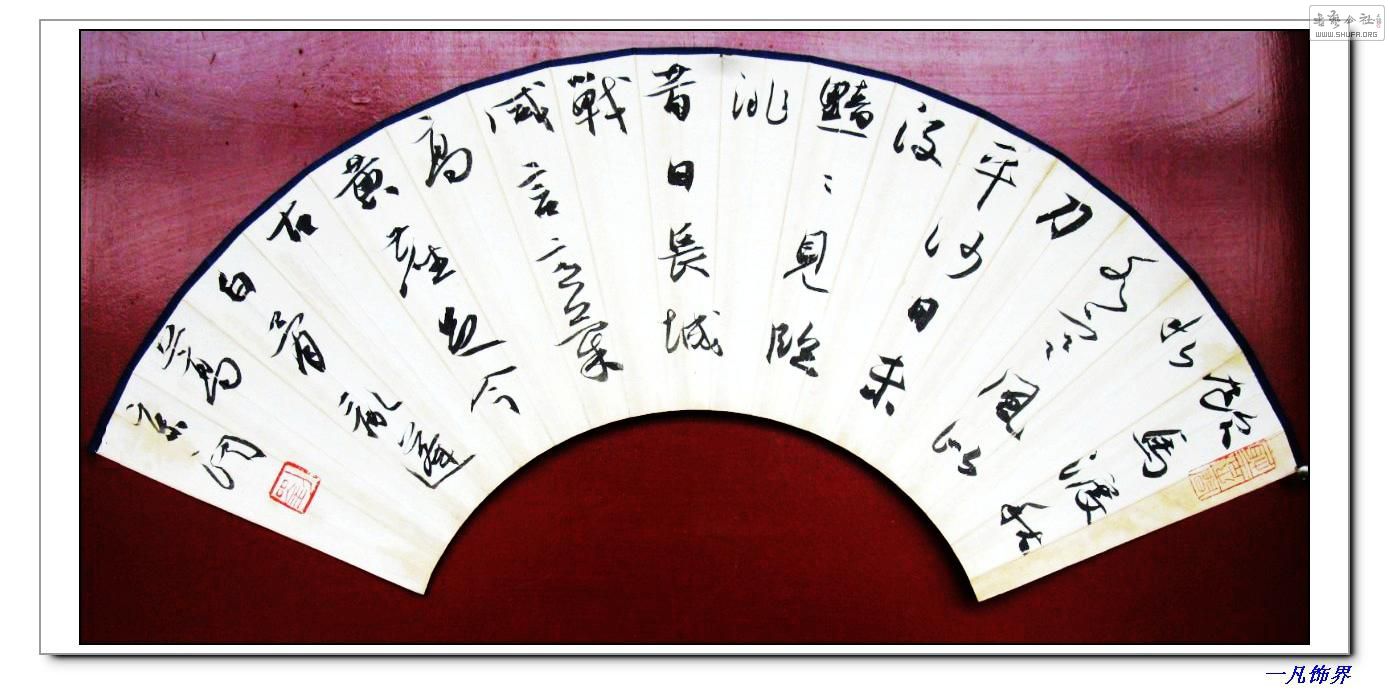 飲馬渡秋
水
水寒風似
刀
平沙日未
没
黯〻見臨
洮
昔日長城
戰
咸言意氣
高
黃塵足今
古
白骨亂蓬
蒿
书艺公社
WWW.SHUFA.ORG
一凡饰界